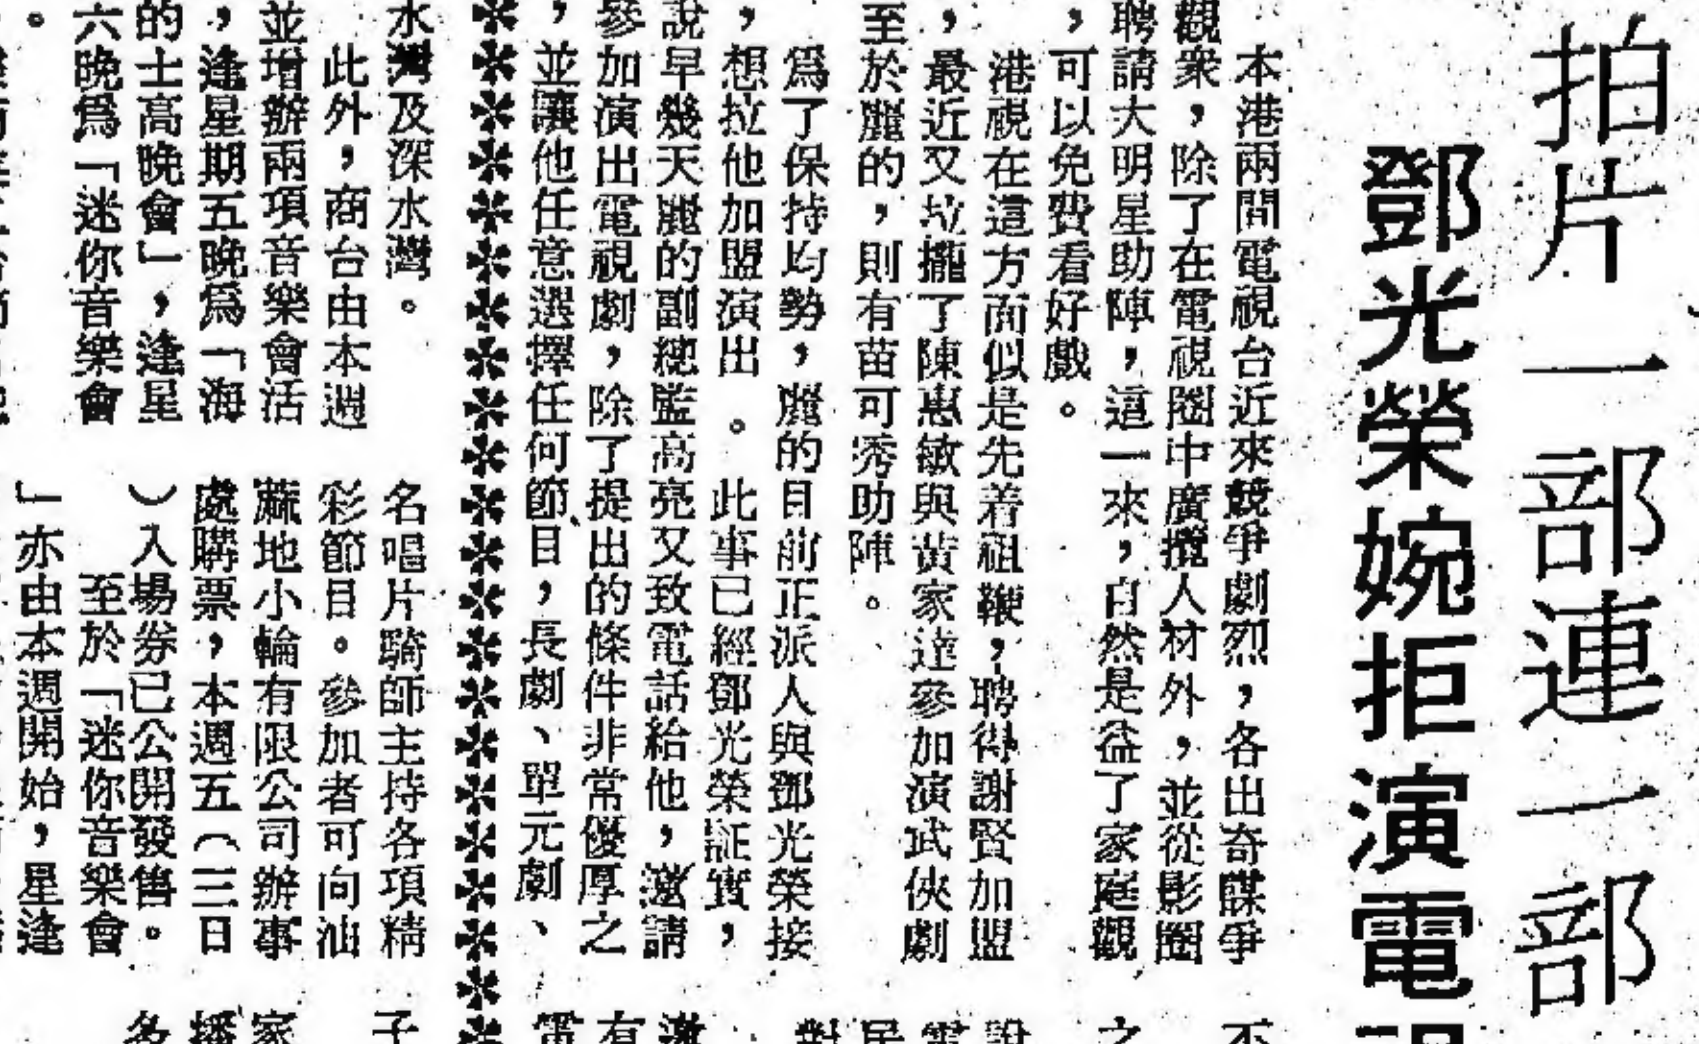 拍片一部連一部
鄧光榮婉拒演電視
本港兩間電視台近來競爭劇烈，各出奇謀爭
觀衆，除了在電視圈中廣攬人材外，並從影圈
聘請大明星助陣，這一來，自然是益了家庭觀
，可以免費看好戲。
港視在這方面似是先着祖鞭，聘得謝賢加盟
，最近又拉攏了陳惠敏與黃家達參加演武俠劇
至於麗的，則有苗可秀助陣。
爲了保持均勢，麗的目前正派人與鄧光榮接
，想拉他加盟演出。此事已經鄧光榮証實，
說早幾天麗的副總監高亮又致電話給他，邀請
參加演出電視劇，除了提出的條件非常優厚之
，並讓他任意選擇任何節目，長劇、單元劇、
水灣及深水灣。
此外，商台由本週
並增辦兩項音樂會活
，逢星期五晚爲「海
的士高晚會」，逢星
六晚爲「迷你音樂會
。
名唱片騎師主持各項精
彩節目。參加者可向油
蔴地小輪有限公司辦事
處購票，本週五（三日
）入場券已公開發售。
至於「迷你音樂會
」亦由本週開始，星逢